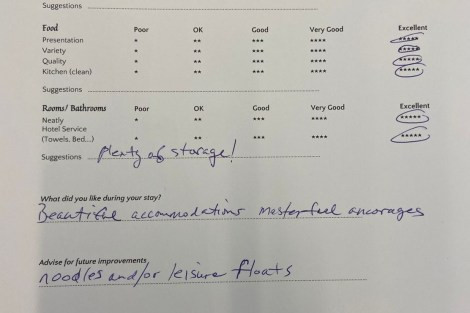 Suggestions
Food Poor OK Good Very Good Excellent
Presentation * ** *** **** *****
Variety * ** *** **** *****
Quality * ** *** **** *****
Kitchen (clean) * ** *** **** *****
Suggestions
Rooms/ Bathrooms Poor OK Good Very Good Excellent
Neatly * ** *** **** *****
Hotel Service
(Towels, Bed...) * ** *** **** *****
Suggestions plenty of storage!
What did you like during your stay?
Beautiful accommodations master-ful ancorages
Advise for future improvements
noodles and/or leisure floats